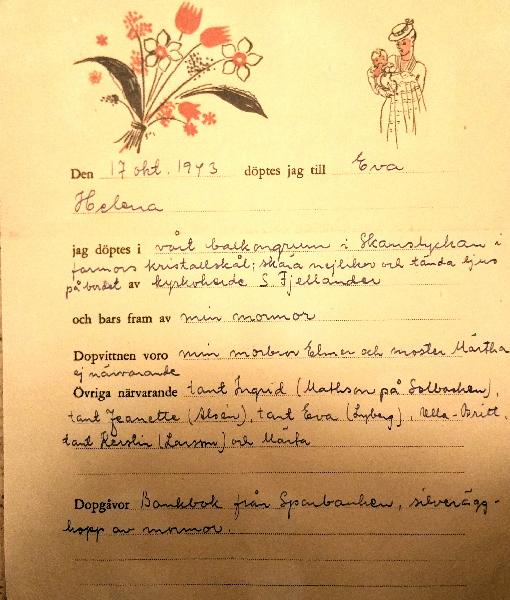 Den 17 okt. 1943 döptes jag till Eva
Helena
jag döptes i vårt balkongrum i Skanstychan i
farmors kristallskål; skära nejlikor och tända ljus
på bordet av kyrkoherde S Fjellander
och bars fram av min mormor
Dopvittnen voro min morbror Elmer och moster Märtha
ej närvarande
Övriga närvarande tant Ingrid (Mathson på Solbacken),
tant Jeanette (Alsén), tant Eva (Lyberg), Ulla-Britt,
tant Kerstin (Larsson) och Märta
Dopgåvor Bankbok från Sparbanken, silverägg-
kopp av mormor.